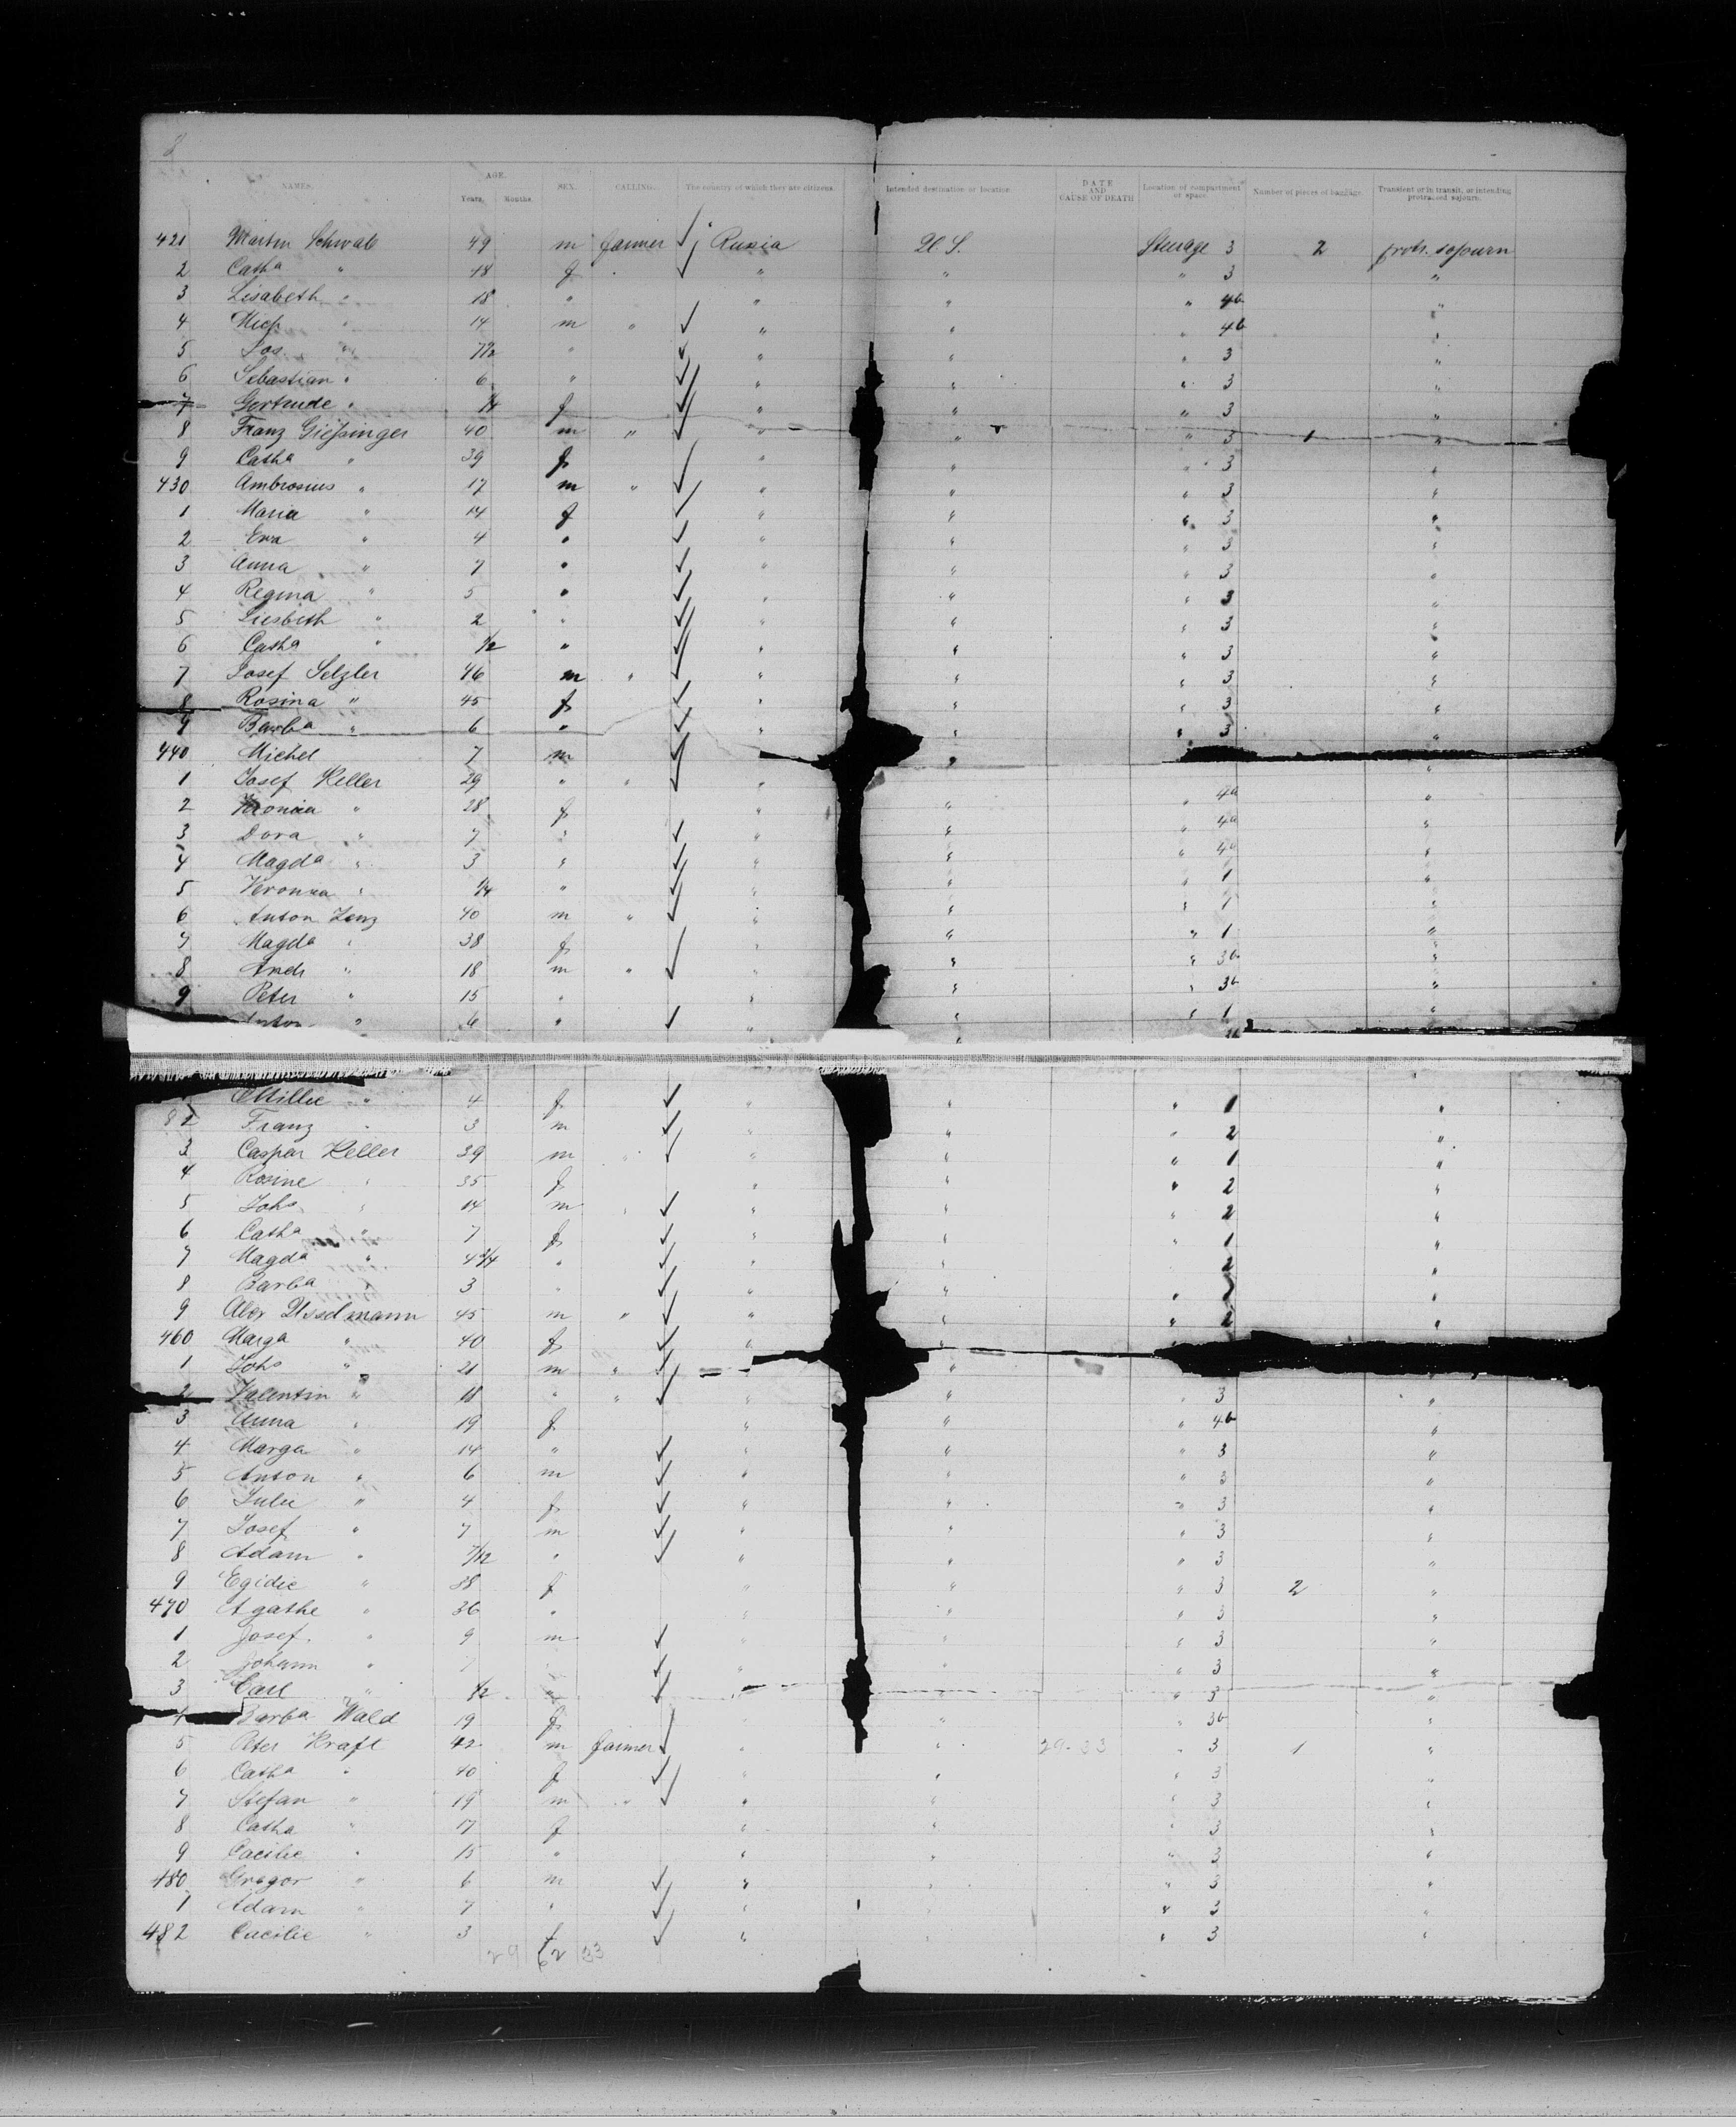 NAMES. AGE. Years. Months. SEX. CALLING. The country of which they are citizens. Intended destination or location DATE AND CAUSE OF DEATH Location of compartment or space. Number of pieces of baggage. Transient or in transit, or intending protracted sojourn.
421 Martin Schwab 49 m farmer ✓ Russia U. S. Steerage 3 2 protr. sojourn
2 Catha " 48 f ✓ " " " 3 "
3 Lisabeth " 18 " " " " 4b "
4 Mich " 14 m " ✓ " " " 4b "
5 Jos " 7½ " ✓ " " " 3 "
6 Sebastian " 6 " ✓ " " " 3 "
7 Gertrude " ¼ f ✓ " " " 3 "
8 Franz Gießinger 40 m " ✓ " " " 3 1 "
9 Catha " 39 f ✓ " " " 3 "
430 Ambrosius " 17 m " ✓ " " " 3 "
1 Maria " 14 f ✓ " " " 3 "
2 Eva " 4 " ✓ " " " 3 "
3 Anna " 7 " ✓ " " " 3 "
4 Regina " 5 " ✓ " " " 3 "
5 Liesbeth " 2 " ✓ " " " 3 "
6 Catha " ½ " ✓ " " " 3 "
7 Josef Selzler 46 m " ✓ " " " 3 "
8 Rosina " 45 f ✓ " " " 3 "
9 Barba " 6 " ✓ " " " 3 "
440 Michel 7 m ✓ "
1 Josef Keller 29 " " ✓ " " 4a "
2 " 28 f " " " 4a "
3 Dora " 7 " ✓ " " " 4a "
4 Magda " 3 " ✓ " " " 1 "
5 Veronika " ¼ " ✓ " " " 1 "
6 Anton Zenz 40 m " ✓ " " " 1 "
7 Magda " 38 f " " " 3b "
8 Andr " 18 m " ✓ " " " 3b "
9 Peter " 15 " " " " 1 "
Anton " 6 " ✓ " "
Ottillie " 4 f ✓ " " " 1 "
2 Franz " 3 m ✓ " " " 2 "
3 Caspar Keller 39 m " ✓ " " " 1 "
4 Rosine " 35 f " " " 2 "
5 Johs " 14 m " ✓ " " " 2 "
6 Catha " 7 f ✓ " " " 1 "
7 Magda " 4¾ " ✓ " "
8 Barba 3 " ✓ " " " "
9 Alex Usselmann 45 m " ✓ " " " 2 "
460 Marga " 40 f ✓ " "
1 Johs " 21 m " ✓ "
2 Valentin " 18 " " ✓ " " " 3 "
3 Anna " 19 f " " " 4b "
4 Marga " 14 " ✓ " " " 3 "
5 Anton " 6 m ✓ " " " 3 "
6 Julie " 4 f ✓ " " " 3 "
7 Josef " 7 m ✓ " " " 3 "
8 Adam " 7/12 " ✓ " " " 3 "
9 Egidie " 38 f " " " 3 2 "
470 Agathe " 36 " " " " 3 "
1 Josef " 9 m ✓ " " " 3 "
2 Johann " 7 ✓ " " " 3 "
3 Carl " ½ " ✓ " " " 3 "
4 Barba Wald 19 f ✓ " " " 3b "
5 Peter Kraft 42 m farmer ✓ " " 29-33 " 3 1 "
6 Catha " 40 f ✓ " " " 3 "
7 Stefan " 19 m " ✓ " " " 3 "
8 Catha " 17 f " " " 3 "
9 Cacilie " 15 " " " " 3 "
480 Gregor " 6 m ✓ " " " 3 "
1 Adam " 7 " ✓ " " " 3 "
482 Cacilie " 3 f ✓ " " " 3 "
29 62 33